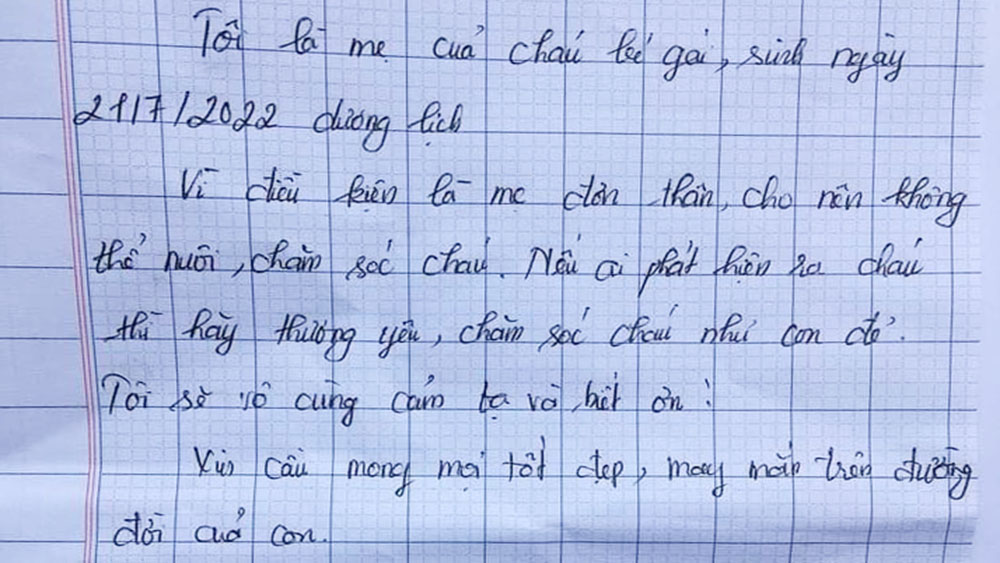 Tôi là mẹ cuả chaú bé gái, sinh ngày
21/7/2022 dương lịch
Vì điều kiện là mẹ đơn thân, cho nên không
thể nuôi, chăm sóc chaú. Nếu ai phát hiện ra chaú
thì hãy thương yêu, chăm sóc chaú như con đẻ.
Tôi sẽ vô cùng cảm tạ và biết ơn!
Xin cầu mong mọi tốt đẹp, may mắn trên đường
đời cuả con.